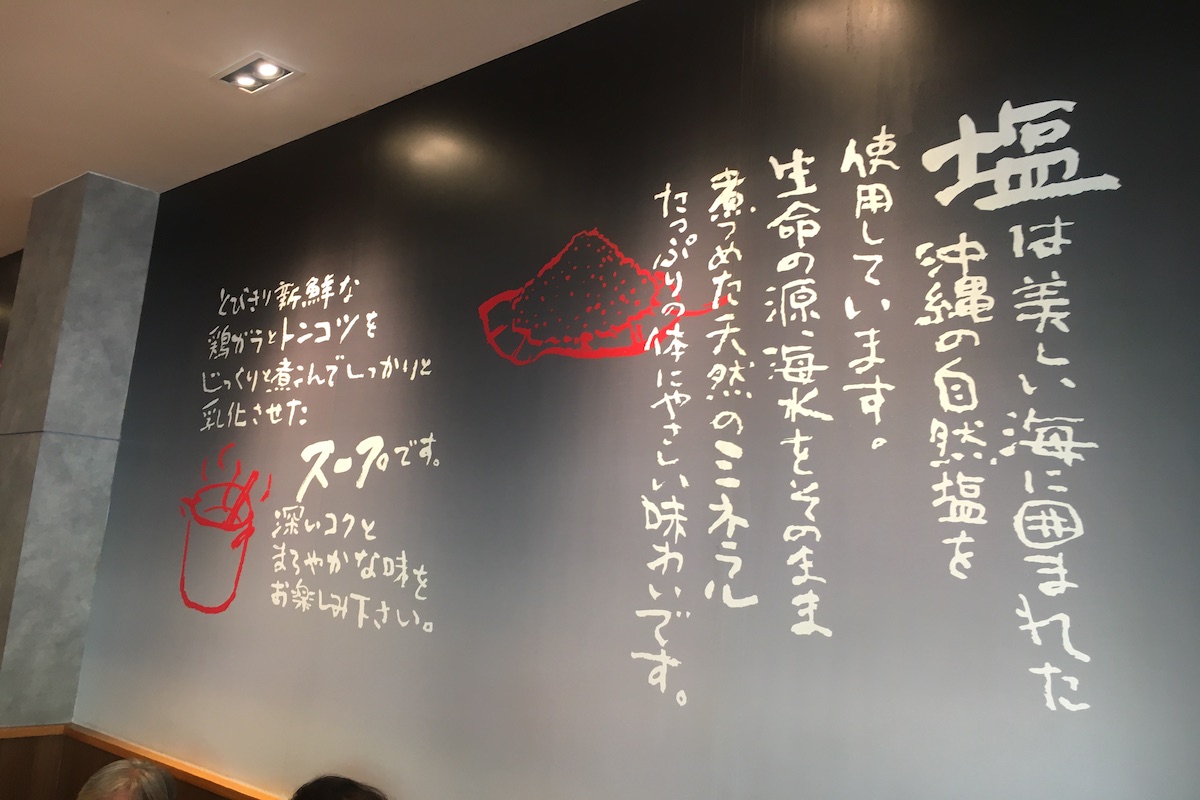 塩は美しい海に囲まれた
沖縄の自然塩を
使用しています。
生命の源、海水をそのまま
煮つめた天然のミネラル
たっぷりの体にやさしい味わいです。
とびきり新鮮な
鶏ガラとトンコツを
じっくりと煮こんでしっかりと
乳化させた
スープです。
深いコクと
まろやかな味を
お楽しみ下さい。